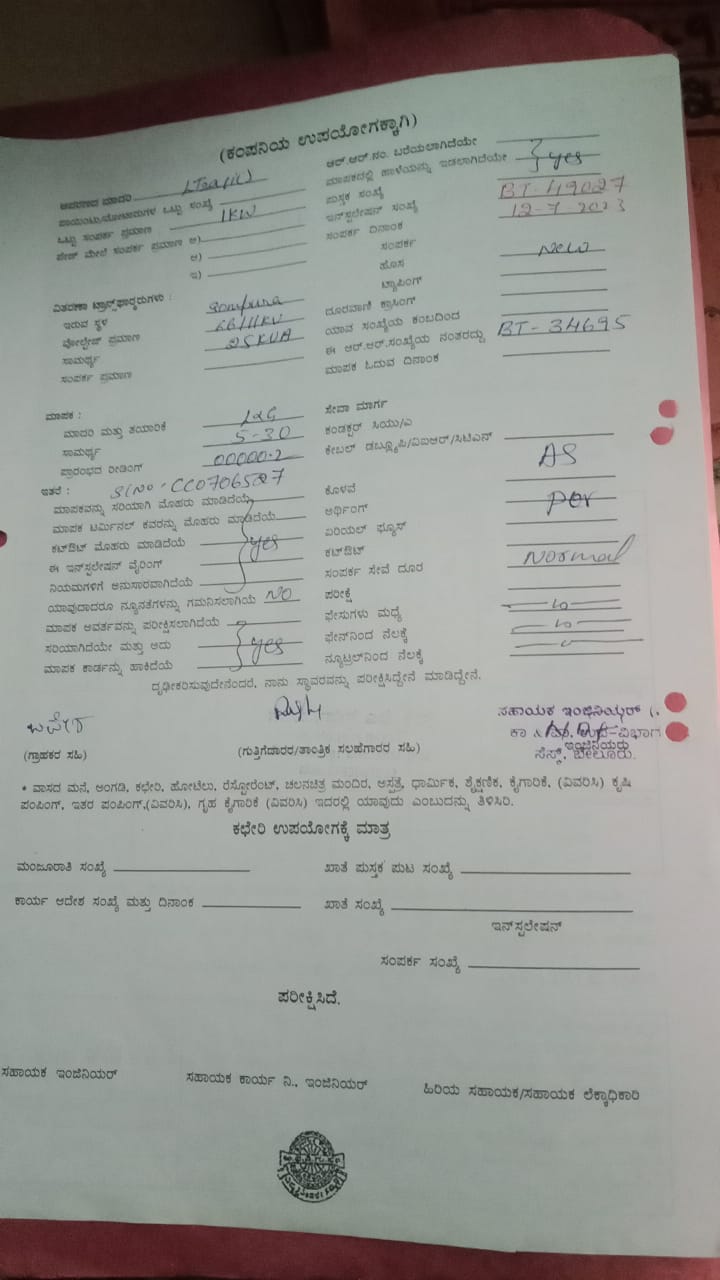 (ಕಂಪನಿಯ ಉಪಯೋಗಕ್ಕಾಗಿ)
ಆವರಣದ ಮಾದರಿ
ಪಾಯಿಂಟು/ನೋಟಾರುಗಳ ಒಟ್ಟು ಸಂಖ್ಯೆ
ಒಟ್ಟು ಸಂಪರ್ಕ ಪ್ರಮಾಣ 1KW
ಪೇಜ್ ಮೇಲೆ ಸಂಪರ್ಕ ಪ್ರಮಾಣ ಅ)
ಆ)
ಇ)
ವಿತರಣಾ ಟ್ರಾನ್ಸ್‌ಫಾರ್ಮರುಗಳು :
ಇರುವ ಸ್ಥಳ Sompura
ವೋಲ್ಟೇಜ್ ಪ್ರಮಾಣ 66/11KV
ಸಾಮರ್ಥ್ಯ 25KVA
ಸಂಪರ್ಕ ಪ್ರಮಾಣ
ಆರ್.ಆರ್.ನಂ. ಬರೆಯಲಾಗಿದೆಯೇ
ಮಾಪಕದಲ್ಲಿ ಹಾಳೆಯನ್ನು ಇಡಲಾಗಿದೆಯೇ yes
ಪುಸ್ತಕ ಸಂಖ್ಯೆ
ಇನ್‌ಸ್ಟಲೇಷನ್ ಸಂಖ್ಯೆ BT-49027
ಸಂಪರ್ಕ ದಿನಾಂಕ 12-7-2023
ಸಂಪರ್ಕ
ಹೊಸ New
ಟ್ಯಾಪಿಂಗ್
ದೂರವಾಣಿ ಕ್ರಾಸಿಂಗ್
ಯಾವ ಸಂಖ್ಯೆಯ ಕಂಬದಿಂದ
ಈ ಆರ್.ಆರ್.ಸಂಖ್ಯೆಯ ನಂತರದ್ದು BT-34695
ಮಾಪಕ ಓದುವ ದಿನಾಂಕ
ಮಾಪಕ :
ಮಾದರಿ ಮತ್ತು ತಯಾರಿಕೆ L&G
ಸಾಮರ್ಥ್ಯ 5-30
ಪ್ರಾರಂಭದ ರೀಡಿಂಗ್ 00000.2
ಇತರೆ : Sl No. CC0706527
ಮಾಪಕವನ್ನು ಸರಿಯಾಗಿ ಮೊಹರು ಮಾಡಿದೆಯೆ
ಮಾಪಕ ಟರ್ಮಿನಲ್ ಕವರನ್ನು ಮೊಹರು ಮಾಡಿದೆಯೆ
ಕಟ್‌ಔಟ್ ಮೊಹರು ಮಾಡಿದೆಯೆ yes
ಈ ಇನ್‌ಸ್ಟಲೇಷನ್ ವೈರಿಂಗ್
ನಿಯಮಗಳಿಗೆ ಅನುಸಾರವಾಗಿದೆಯೆ
ಯಾವುದಾದರೂ ನ್ಯೂನತೆಗಳನ್ನು ಗಮನಿಸಲಾಗಿಯೆ NO
ಮಾಪಕ ಆವರ್ತವನ್ನು ಪರೀಕ್ಷಿಸಲಾಗಿದೆಯೆ
ಸರಿಯಾಗಿದೆಯೇ ಮತ್ತು ಅದು yes
ಮಾಪಕ ಕಾರ್ಡನ್ನು ಹಾಕಿದೆಯೆ
ಸೇವಾ ಮಾರ್ಗ
ಕಂಡಕ್ಟರ್ ಸಿಯು/ಎ
ಕೇಬಲ್ ಡಬ್ಲ್ಯೂಪಿ/ವಿಐಆರ್/ಸಿಟಿಎಸ್
ಕೊಳವೆ AS
ಅರ್ಥಿಂಗ್ per
ಏರಿಯಲ್ ಫ್ಯೂಸ್
ಕಟ್‌ಔಟ್ Normal
ಸಂಪರ್ಕ ಸೇವೆ ದೂರ
ಪರೀಕ್ಷೆ
ಫೇಸುಗಳು ಮಧ್ಯೆ
ಫೇಸ್‌ನಿಂದ ನೆಲಕ್ಕೆ
ನ್ಯೂಟ್ರಲ್‌ನಿಂದ ನೆಲಕ್ಕೆ
ದೃಢೀಕರಿಸುವುದೇನೆಂದರೆ, ನಾನು ಸ್ಥಾವರವನ್ನು ಪರೀಕ್ಷಿಸಿದ್ದೇನೆ ಮಾಡಿದ್ದೇನೆ.
ಸಹಾಯಕ ಇಂಜಿನಿಯರ್ (.
ಕಾ & ಉಪ-ವಿಭಾಗ
ಇಂಜಿನಿಯರು
ಸೆಸ್ಕ್, ಬೇಲೂರು.
(ಗ್ರಾಹಕರ ಸಹಿ) (ಗುತ್ತಿಗೆದಾರರ/ತಾಂತ್ರಿಕ ಸಲಹೆಗಾರರ ಸಹಿ)
* ವಾಸದ ಮನೆ, ಅಂಗಡಿ, ಕಛೇರಿ, ಹೋಟೆಲು, ರೆಸ್ಟೋರೆಂಟ್, ಚಲನಚಿತ್ರ ಮಂದಿರ, ಆಸ್ಪತ್ರೆ, ಧಾರ್ಮಿಕ, ಶೈಕ್ಷಣಿಕ, ಕೈಗಾರಿಕೆ, (ವಿವರಿಸಿ) ಕೃಷಿ
ಪಂಪಿಂಗ್, ಇತರ ಪಂಪಿಂಗ್,(ವಿವರಿಸಿ), ಗೃಹ ಕೈಗಾರಿಕೆ (ವಿವರಿಸಿ) ಇದರಲ್ಲಿ ಯಾವುದು ಎಂಬುದನ್ನು ತಿಳಿಸಿರಿ.
ಕಛೇರಿ ಉಪಯೋಗಕ್ಕೆ ಮಾತ್ರ
ಮಂಜೂರಾತಿ ಸಂಖ್ಯೆ ಖಾತೆ ಪುಸ್ತಕ ಪುಟ ಸಂಖ್ಯೆ
ಕಾರ್ಯ ಆದೇಶ ಸಂಖ್ಯೆ ಮತ್ತು ದಿನಾಂಕ ಖಾತೆ ಸಂಖ್ಯೆ
ಇನ್‌ಸ್ಟಲೇಷನ್
ಸಂಪರ್ಕ ಸಂಖ್ಯೆ
ಪರೀಕ್ಷಿಸಿದೆ.
ಸಹಾಯಕ ಇಂಜಿನಿಯರ್ ಸಹಾಯಕ ಕಾರ್ಯ ನಿ., ಇಂಜಿನಿಯರ್ ಹಿರಿಯ ಸಹಾಯಕ/ಸಹಾಯಕ ಲೆಕ್ಕಾಧಿಕಾರಿ